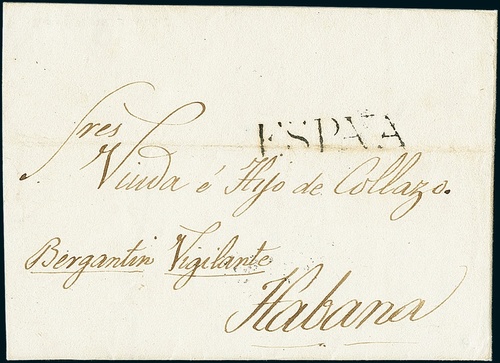 Sres
ESPAÑA
Viuda é Hijo de Collazo.
Bergantin Vigilante
Habana